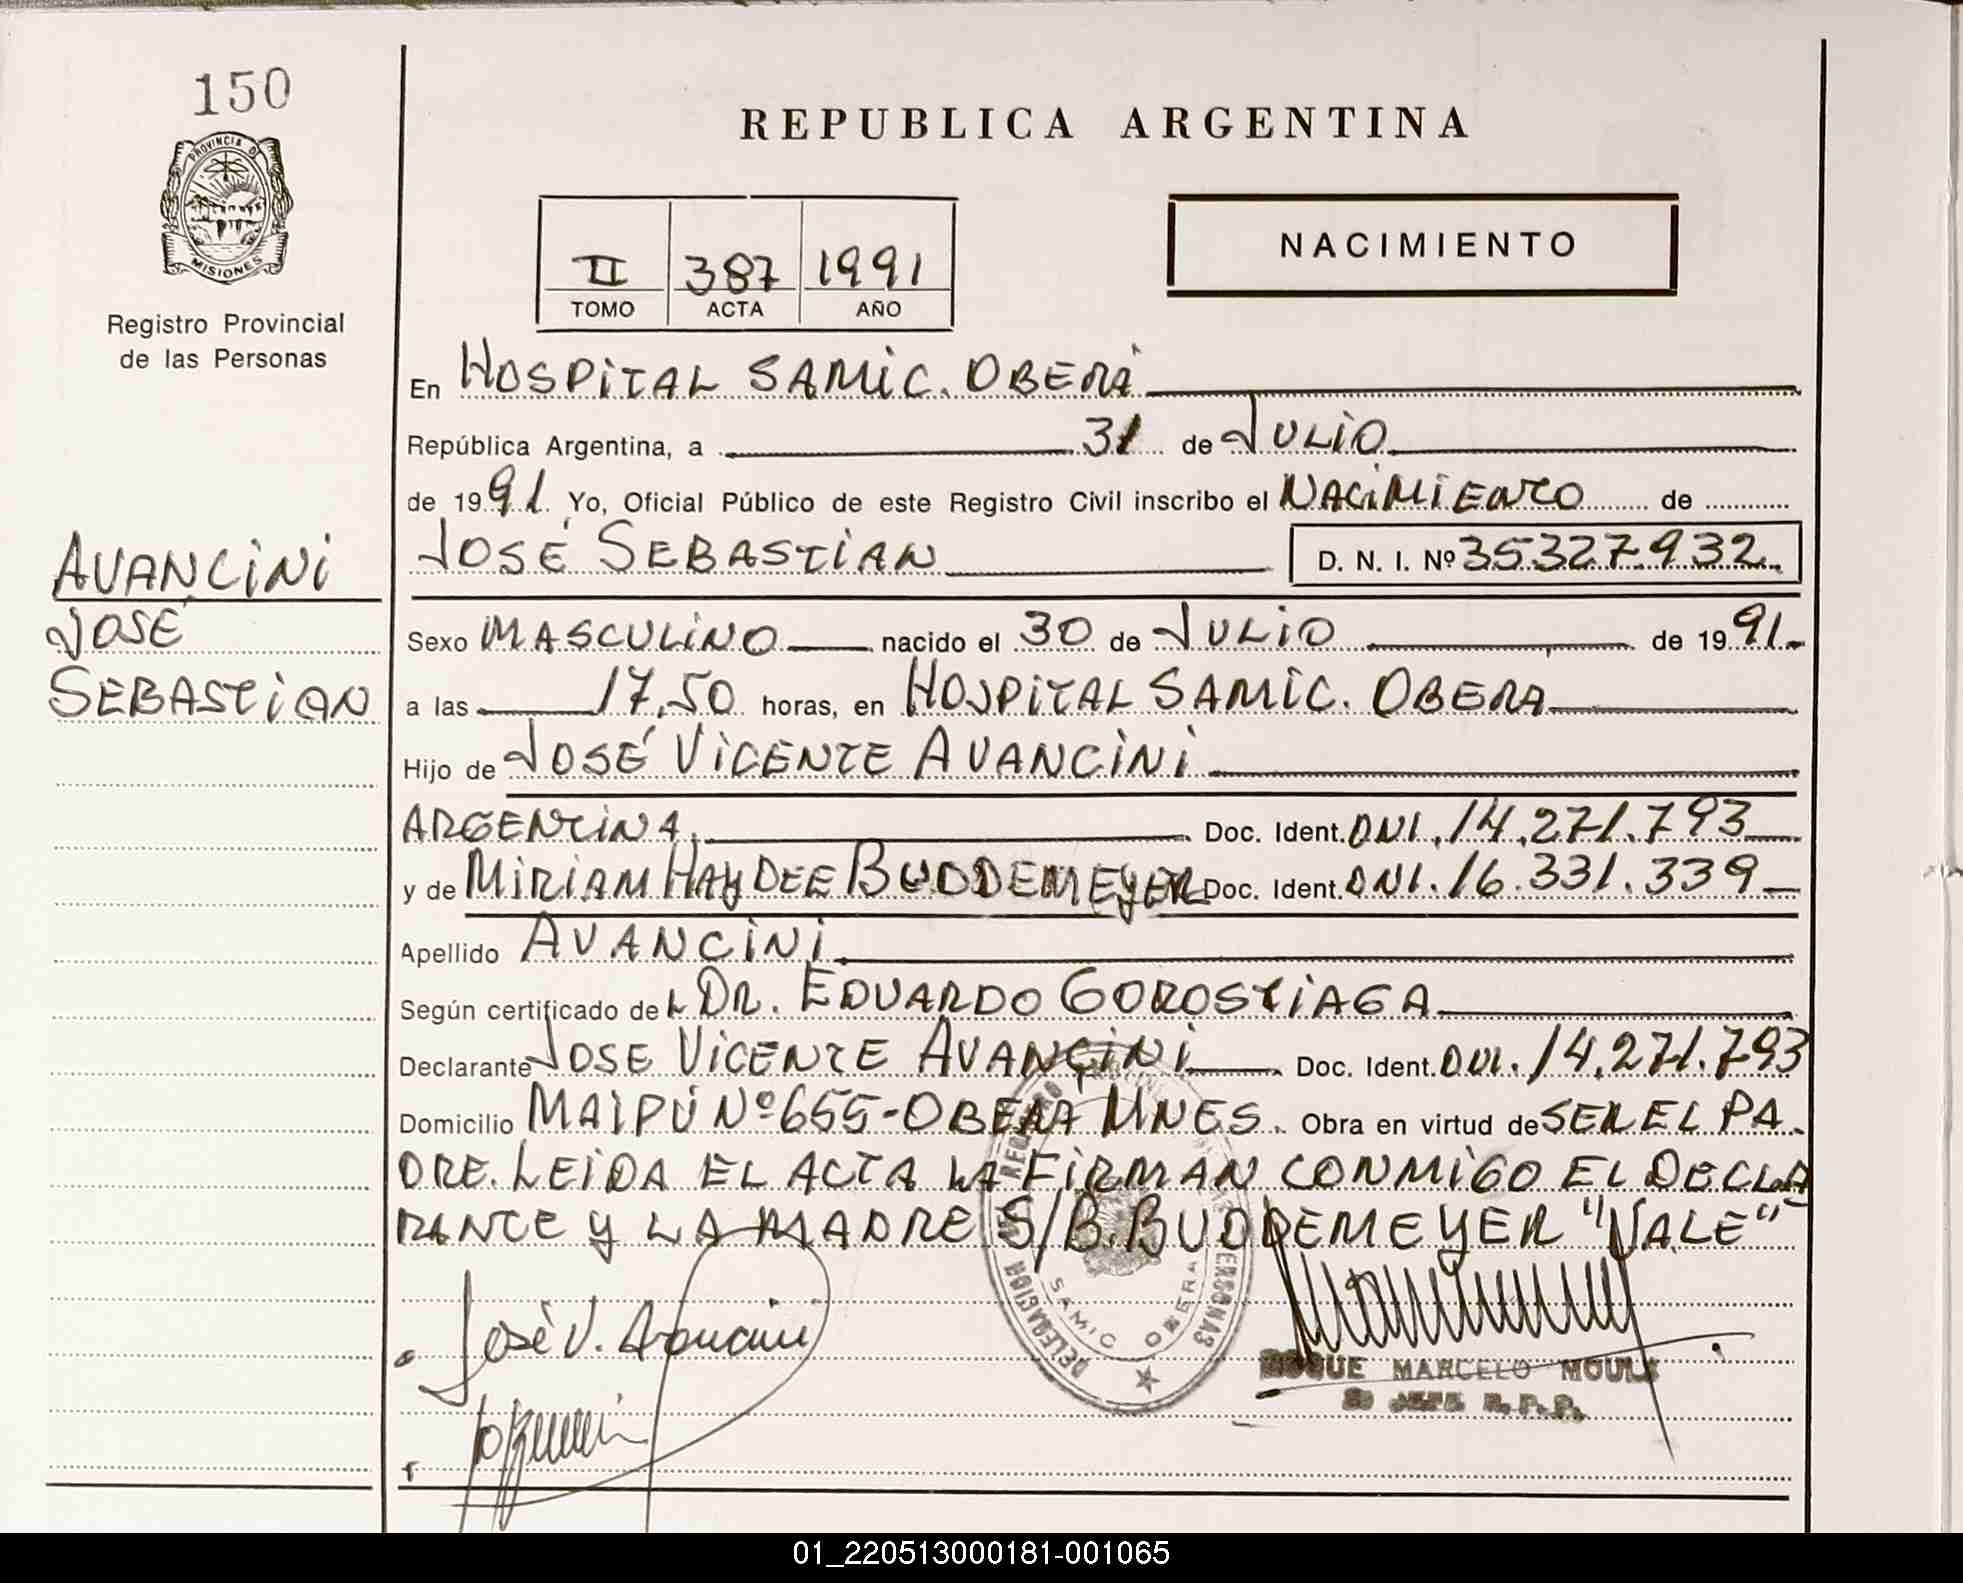 150
PROVINCIA DE
MISIONES
Registro Provincial
de las Personas
REPUBLICA ARGENTINA
II 387 1991
TOMO ACTA AÑO
NACIMIENTO
En HOSPITAL SAMIC. OBERÁ
República Argentina, a 31 de JULIO
de 1991. Yo, Oficial Público de este Registro Civil inscribo el NACIMIENTO de
AVANCINI
JOSÉ
SEBASTIAN
JOSÉ SEBASTIAN D. N. I. Nº 35.327.932.
Sexo MASCULINO nacido el 30 de JULIO de 1991.
a las 17,50 horas, en HOSPITAL SAMIC. OBERA
Hijo de JOSÉ VICENTE AVANCINI
ARGENTINA. Doc. Ident. DNI. 14.271.793
y de MIRIAM HAYDEE BUDDEMEYER Doc. Ident. DNI. 16.331.339
Apellido AVANCINI
Según certificado de L DR. EDUARDO GOROSTIAGA
Declarante JOSE VICENTE AVANCINI Doc. Ident. DNI. 14.271.793
Domicilio MAIPÚ Nº 655-OBERA MNES. Obra en virtud de SER EL PA
DRE. LEIDA EL ACTA LA FIRMAN CONMIGO EL DECLA
RANTE y LA MADRE S/B. BUDDEMEYER "VALE"
José V. Avancini
DELEGACION
PERSONAS
SAMIC OBERA
ROQUE MARCELO MOULS
JEFE R.P.P.
01_220513000181-001065